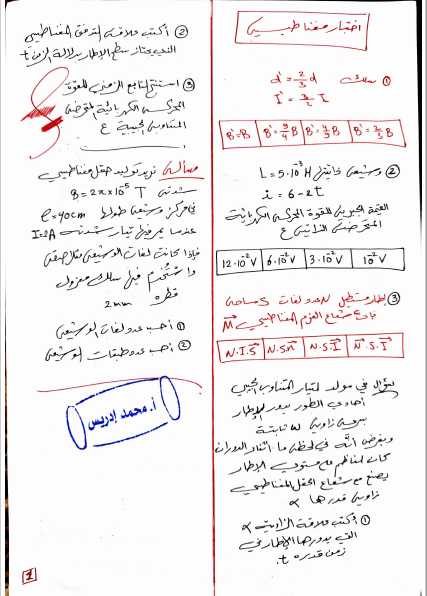 اختبار مغناطيسية
① سلك
d' = 2/3 d
I' = 3/2 I
B' = B
B' = 9/4 B
B' = 4/9 B
B' = 3/2 B
② وشيعة ذاتيتها L = 5·10⁻³ H
i = 6 - 2t
القيمة الجبرية للقوة المحركة الكهربائية
المتحرضة الذاتية ε
12·10⁻² V
6·10⁻² V
3·10⁻² V
10⁻² V
③ إطار مستطيل N عدد لفاته S مساحته
شعاع العزم المغناطيسي M
N.I.S
N.S.n
N.S.I
N.S.I
سؤال في مولد لتيار المتناوب الجيبي
أحادي الطور يدور الإطار
بسرعة زاوية ω ثابتة
وبفرض أنه في لحظة ما أثناء الدوران
كان الناظم على مستوي الإطار
يصنع مع شعاع الحقل المغناطيسي
زاوية قدرها α
① أكتب علاقة الزاوية α
التي يدورها الإطار في
زمن قدره t.
② أكتب علاقة التدفق المغناطيسي
الذي يجتاز سطح الإطار بدلالة الزمن t
③ استنتج التابع الزمني للقوة
المحركة الكهربائية المتحرضة
المتناوبة الجيبية ε
مسألة نريد توليد حقل مغناطيسي
شدته B = 2π×10⁻⁵ T
في مركز وشيعة طولها ℓ = 40 cm
عندما يمر فيها تيار شدته I = 2A
فإذا كانت لفات الوشيعة متلاصقة
واستخدم فيها سلك معزول
قطره 2mm
① أحسب عدد لفات الوشيعة
② أحسب عدد طبقات الوشيعة
أ. محمد إدريس
1